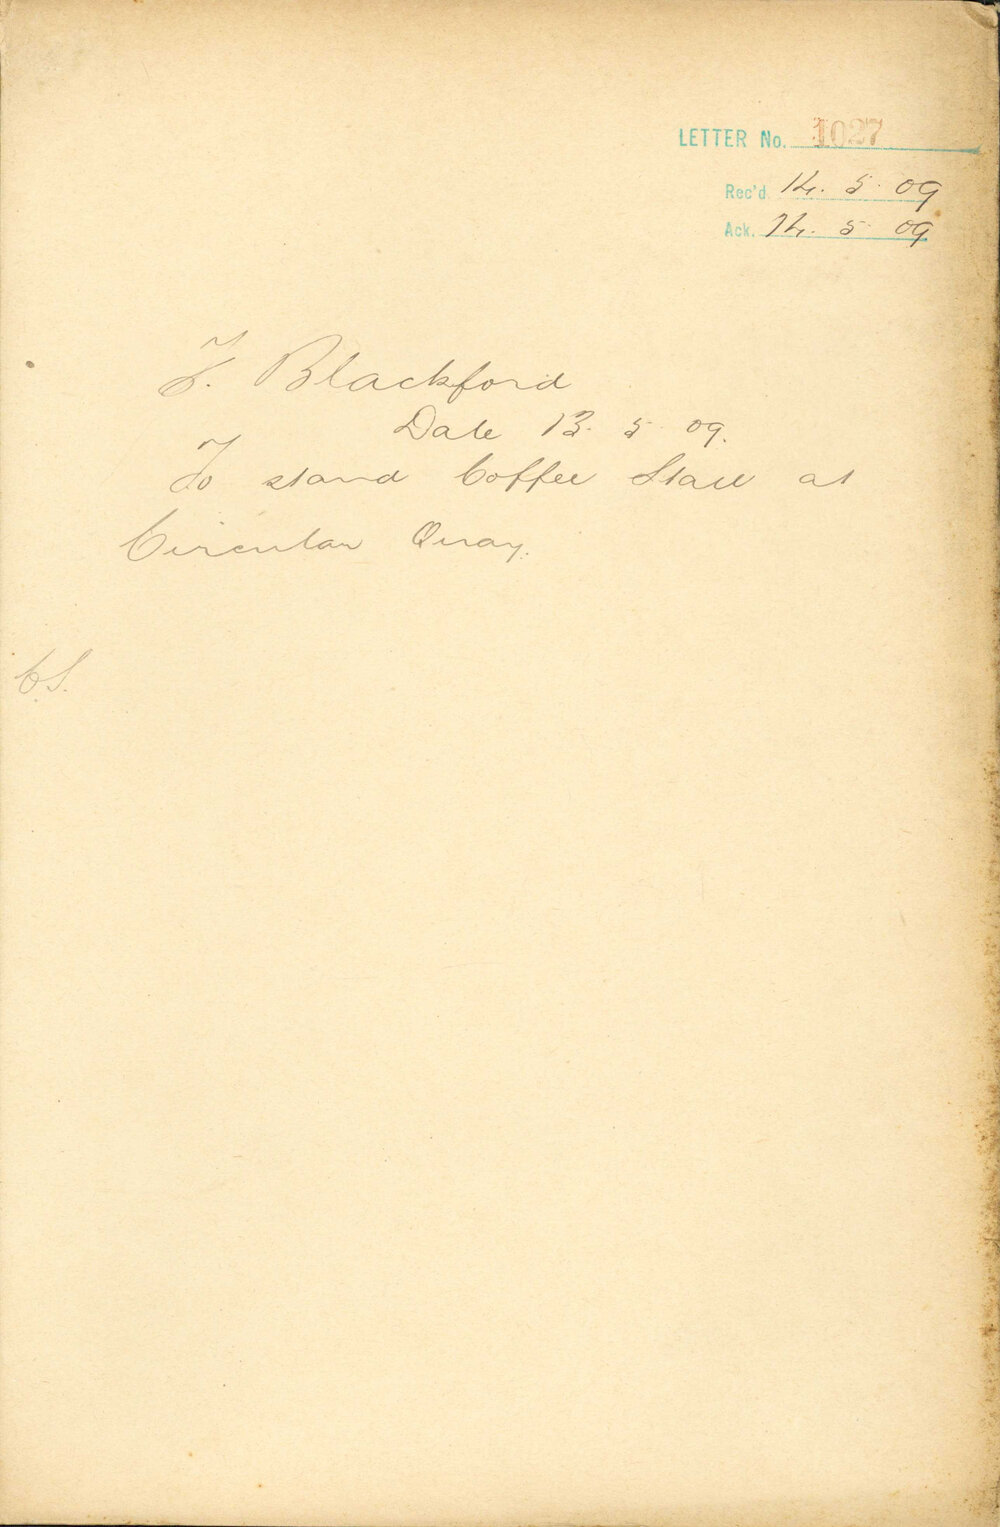 LETTER No. 1027
Rec'd 14. 5. 09
Ack. 14. 5. 09
F. Blackford
Date 13. 5. 09.
To stand Coffee Stall at
Circular Quay.
C.S.